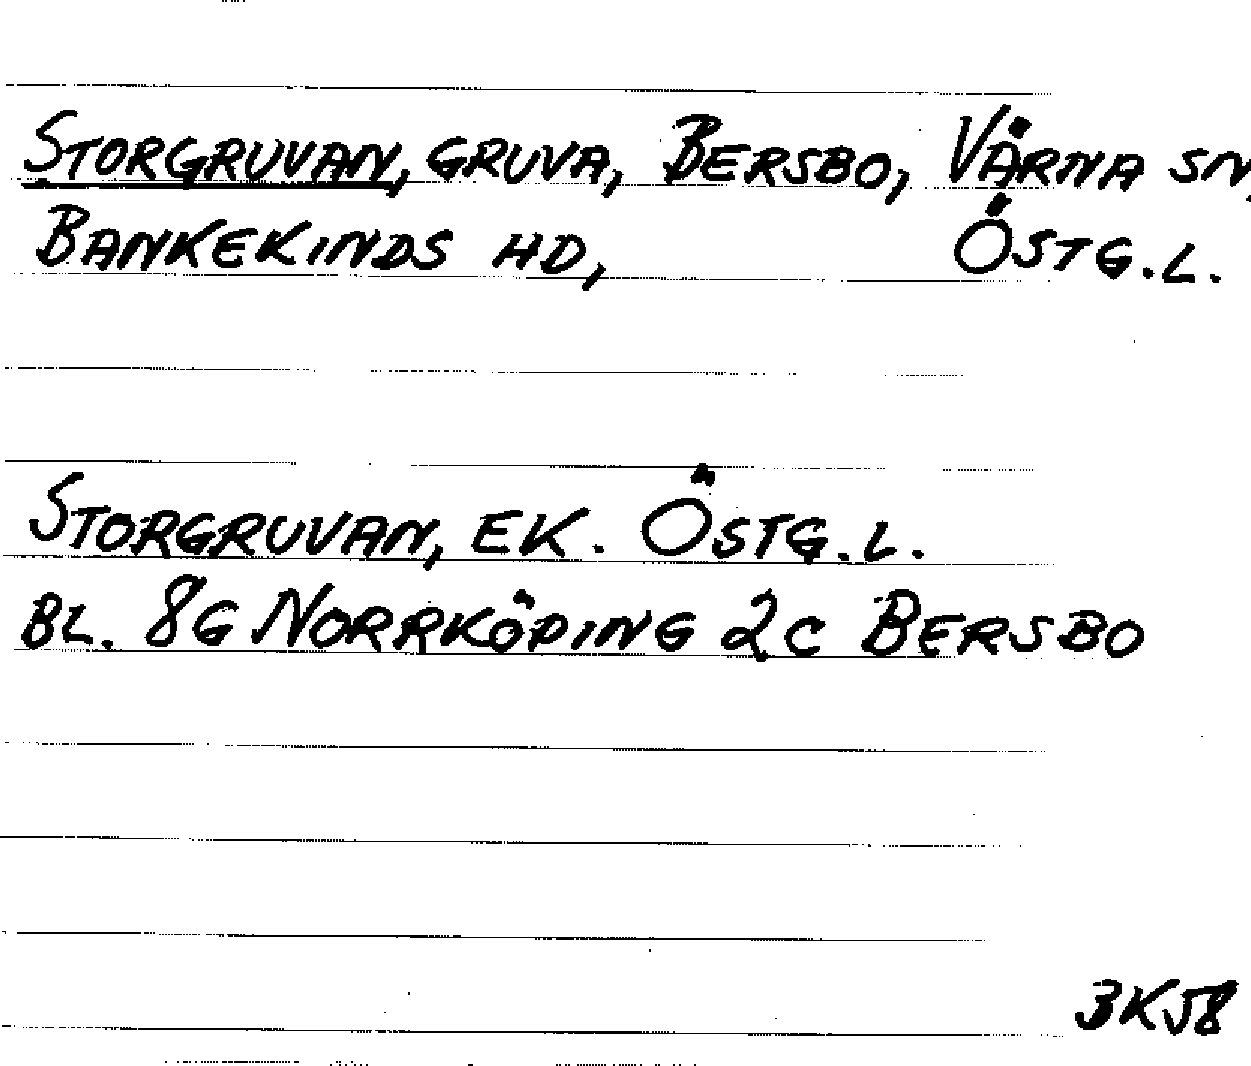 STORGRUVAN, GRUVA, BERSBO, VÄRNA SN,
BANKEKINDS HD, ÖSTG.L.
STORGRUVAN, EK. ÖSTG.L.
BL. 8G NORRKÖPING 2C BERSBO
3K58